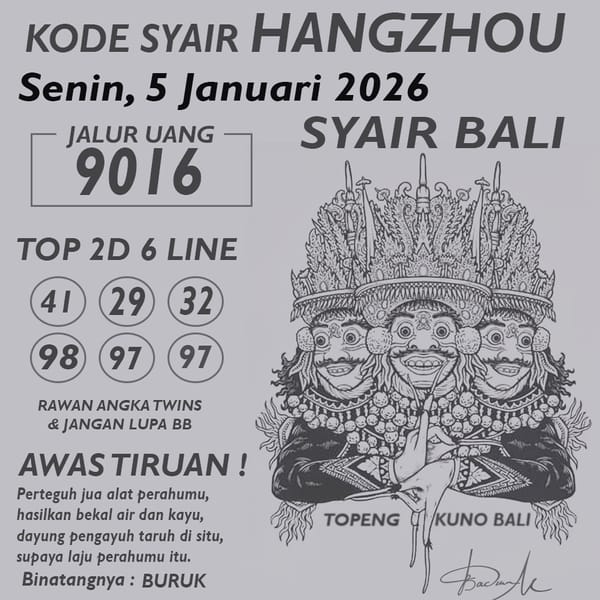 KODE SYAIR HANGZHOU
Senin, 5 Januari 2026
SYAIR BALI
JALUR UANG
9016
TOP 2D 6 LINE
41 29 32
98 97 97
RAWAN ANGKA TWINS
& JANGAN LUPA BB
AWAS TIRUAN !
Perteguh jua alat perahumu,
hasilkan bekal air dan kayu,
dayung pengayuh taruh di situ,
supaya laju perahumu itu.
Binatangnya : BURUK
TOPENG KUNO BALI